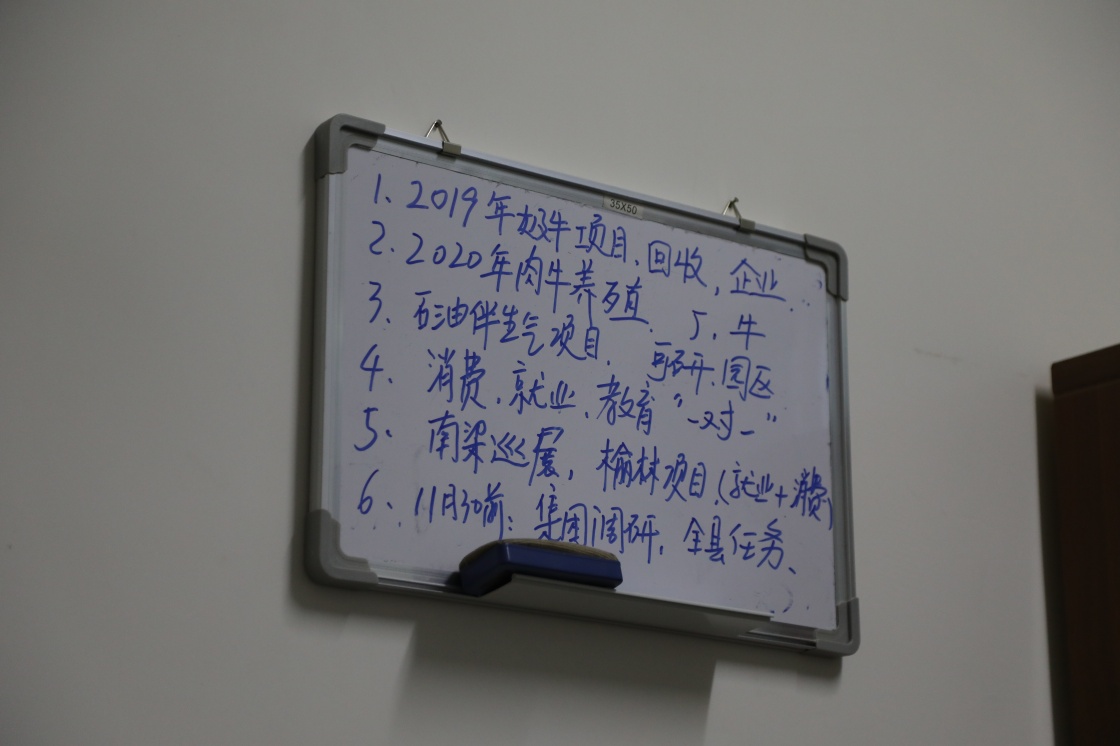 35X50
1. 2019年极牛项目、回收,企业
2. 2020年肉牛养殖、 厂、牛
3、石油伴生气项目、可研、园区
4、消费、就业、教育“一对一”
5、南梁巡展,榆林项目(就业+消费)
6、11月30前:集团调研,全县任务、